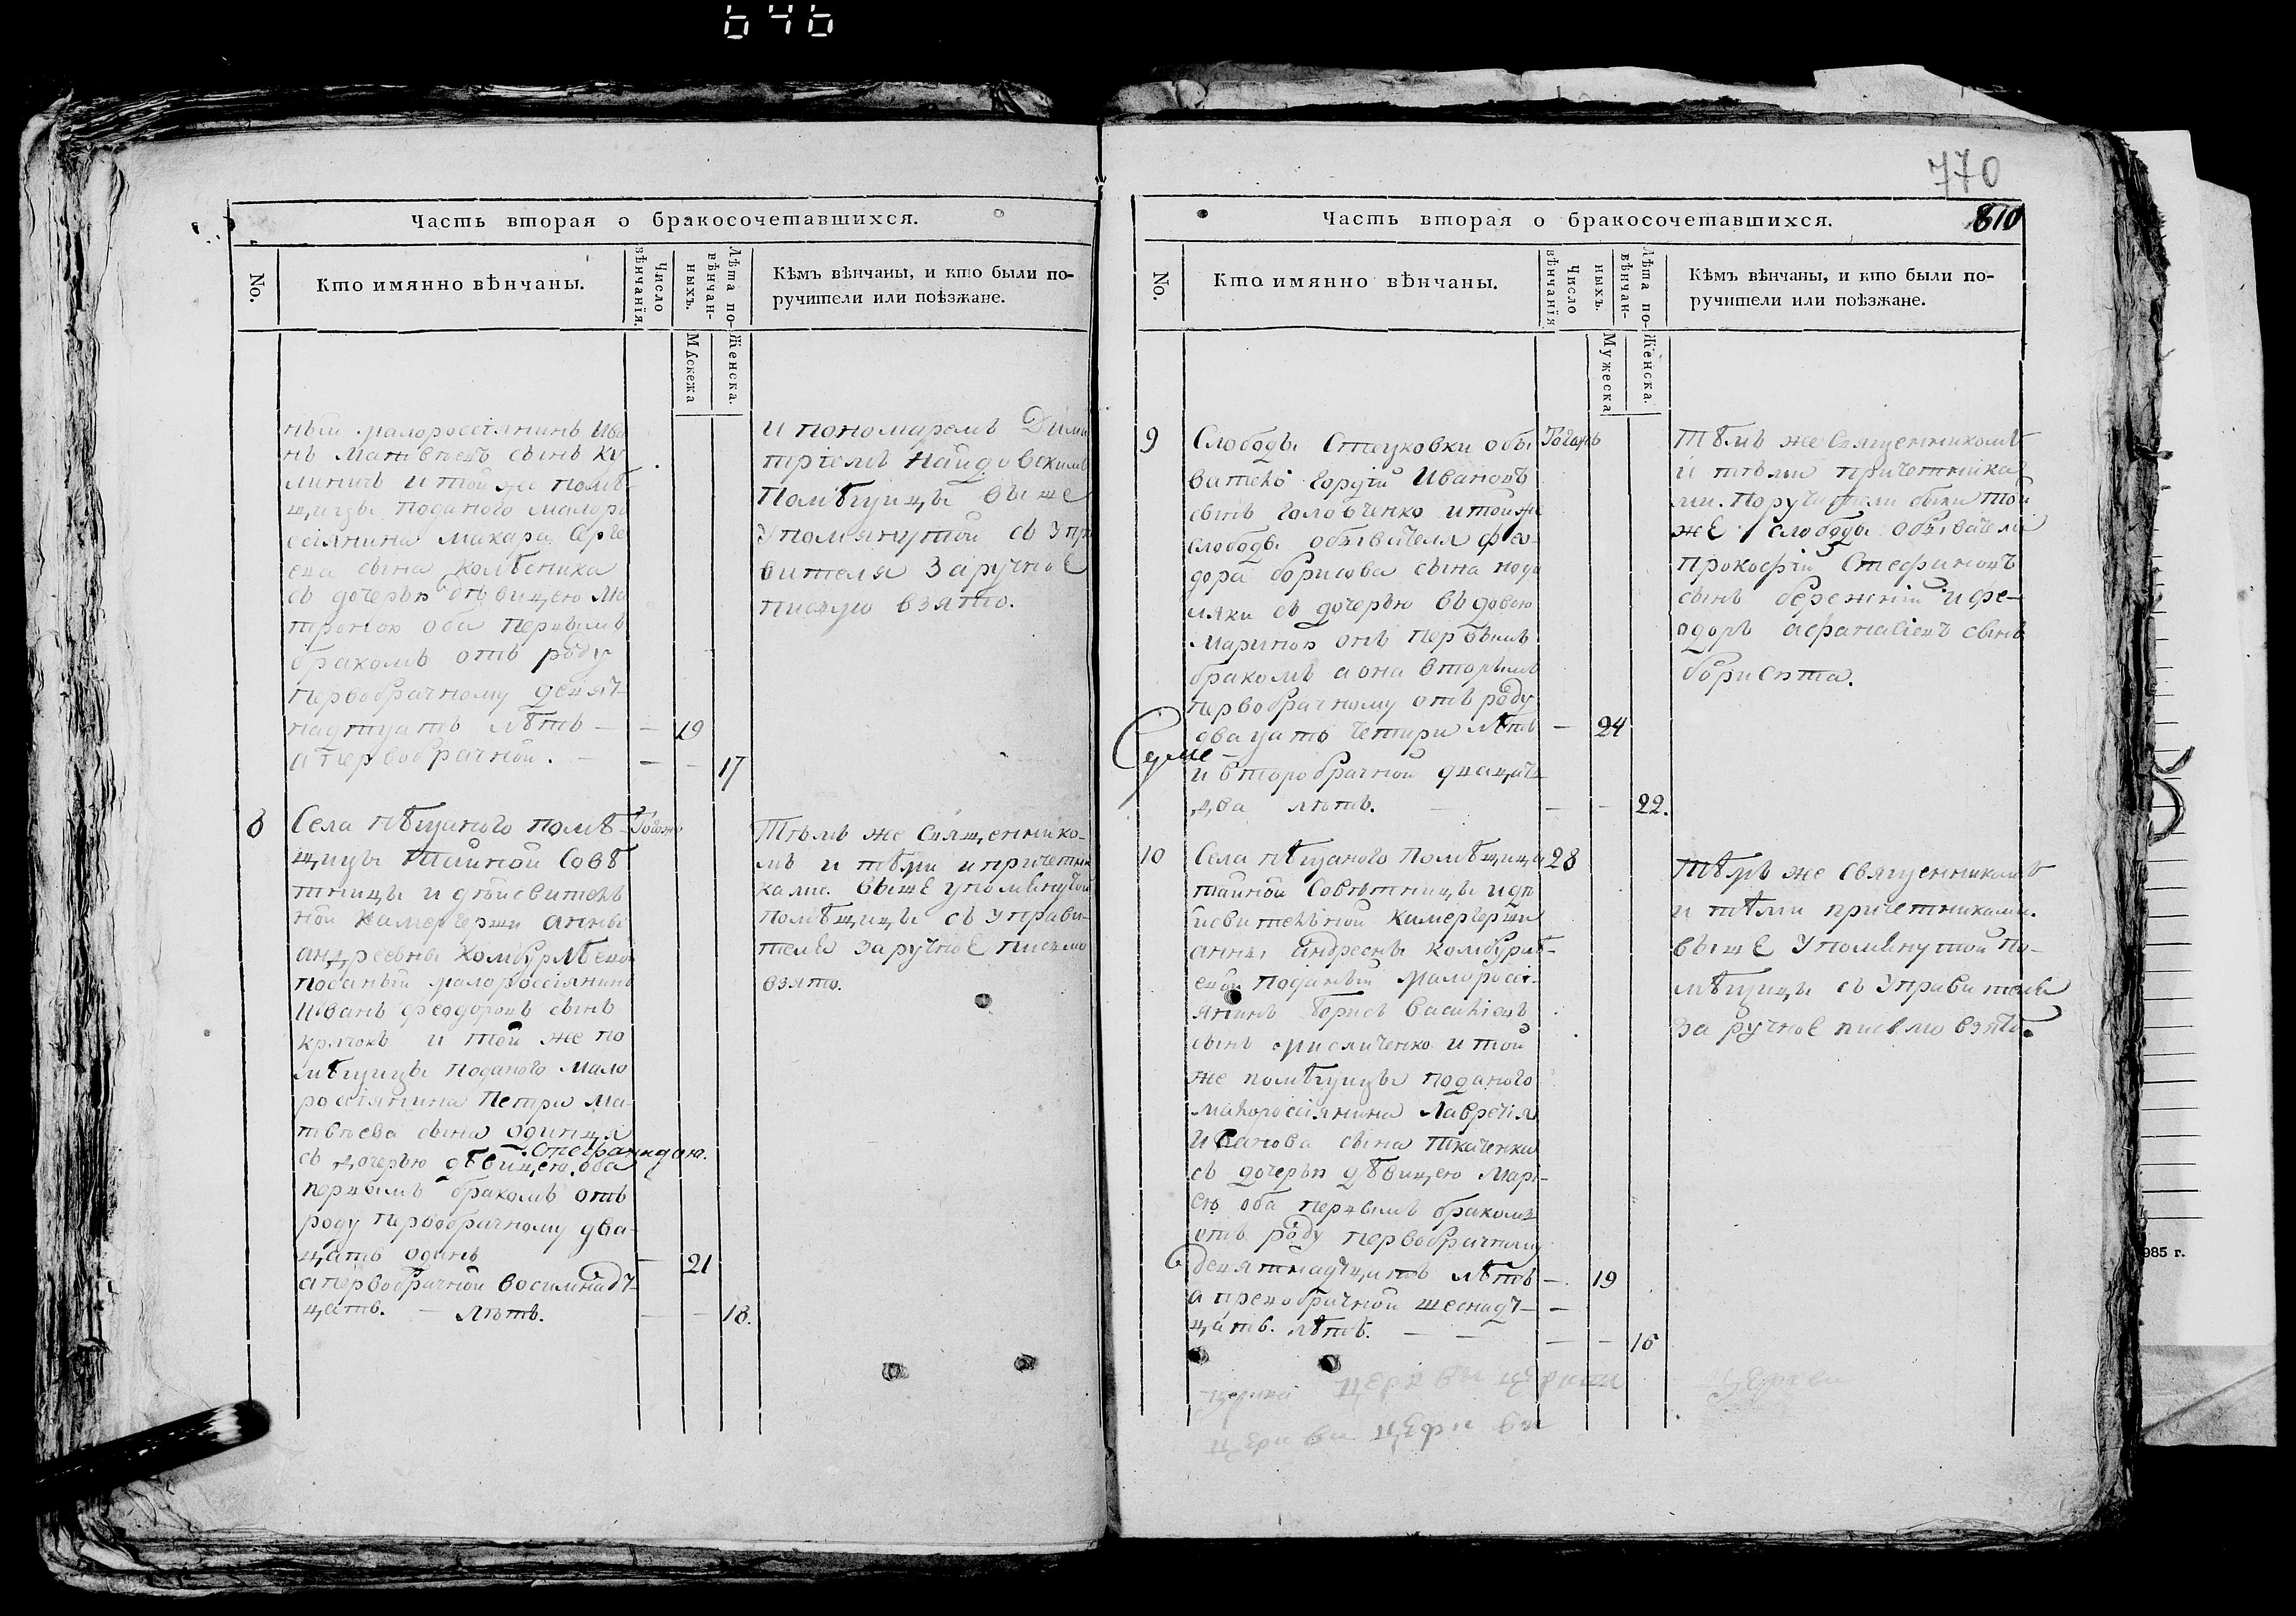 646
Часть вторая о бракосочетавшихся.
No.
Кто имянно вѣнчаны.
Число вѣнчанія.
Лѣта повѣнчанныхъ.
Мужеска
Женска.
Кѣмъ вѣнчаны, и кто были поручители или поѣзжане.
ный малороссіянинъ Ива
нъ Матвѣевъ сынъ Ку
линичь и той же помѣ
щицы поданого малоро
сіянина Макара Серге
ева сына Колѣсника
съ дочерью дѣвицею Ма
троною оба первымъ
бракомъ отъ роду
первобрачному девят
надтцать лѣтъ — — 19
а первобрачной. — — — 17
и пономаремъ Дими
тріемъ Найдовскимъ
Помѣщицы выше
упомянутой съ упра
вителя заручное
писмо взято.
8
Села пѣщаного помѣ Тогожъ
щицы Тайной Совѣ
тницы и дѣйсвитель
ной камергерши анны
андреевны Комбурлѣевой
поданый малоросіянинъ
Иванъ феодоровъ сынъ
Крючокъ и той же по
мѣщицы поданого мало
росіянина Петра Ма
твѣева сына
Стефанидою.
съ дочерью дѣвицею оба
первымъ бракомъ отъ
роду первобрачному два
цать одинъ — 21
а первобрачной восимнадт
цать. — лѣтъ. — — 18.
Тѣмъ же Священнико
мъ и тѣми и причетни
ками. выше упомянутой
помѣщицы съ управи
теля заручное писмо
взято.
770
810
Часть вторая о бракосочетавшихся.
No.
Кто имянно вѣнчаны.
Число вѣнчанія
Лѣта повѣнчанныхъ.
Мужеска
Женска.
Кѣмъ вѣнчаны, и кто были поручители или поѣзжане.
9
Слободы Стецковки обы Тогожъ
ватель Иванов
сынъ Головченко и той же
слободы обывателя фео
дора борисова сына
съ дочерью вдовою
Мариною онъ первымъ
бракомъ а она вторымъ
первобрачному отъ роду
двацать четири лѣтъ — 24
и второбрачной двацать
два лѣтъ. — — 22.
Тѣмъ же Священникомъ
и тѣми причетника
ми. Поручители были той
же слободы обыватели
Прокофій Стефановъ
сынъ бережній и фе
одоръ афанасіевъ сынъ
10
Села пѣщаного Помѣщицы 28
тайной Совѣтницы и дѣ
йсвительной Камергерши
анны андреевны Комбурлѣ
евой поданый Малоросі
янинъ Борисъ Василіевъ
сынъ Мисличенко и той
же помѣщицы поданого
малоросіянина Лаврентія
Иванова сына Ткаченка
съ дочерью дѣвицею Марі
ею оба первымъ бракомъ
отъ роду первобрачному
девятнадтцать лѣтъ — 19
а первобрачной шеснадт —
цать. лѣтъ. — — — — 16
Тѣмъ же Священникомъ
и тѣми причетниками.
выше упомянутой по
мѣщицы съ управителя
заручное писмо взято.
церкви церкви
церкви церкви
985 г.